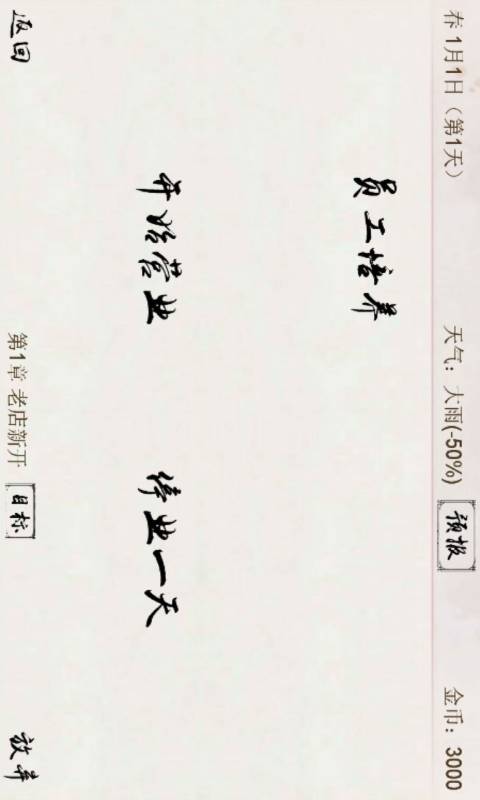 春 1月1日（第1天） 天气：大雨(-50%) 预报 金币：3000
员工培养
开始营业 停业一天
返回 第1章 老店新开 目标 放弃